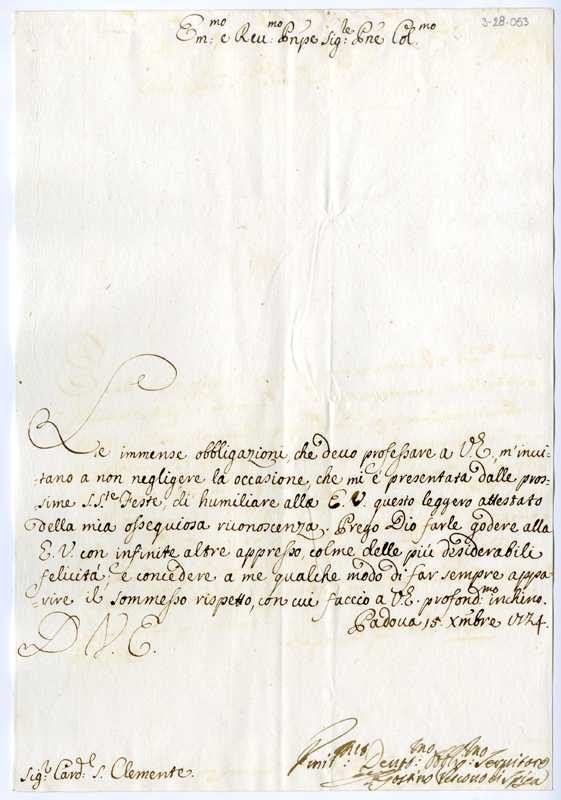 3-28-053
Em:mo e Reu:mo Pnpe Sig:re Pne Col:mo
Le immense obbligazioni, che deuo professare a V.E., m'inui-
-tano a non negligere la occasione, che mi è presentata dalle pros-
-sime S.S.te Feste, di humiliare alla E.V. questo leggero attestato
della mia ossequiosa riconoscenza. Prego Dio farle godere alla
E.V con infinite altre appresso, colme delle più desiderabili
felicità; e concedere a me qualche modo di far sempre appa-
-rire il sommesso rispetto, con cui faccio a V.E. profond:mo inchino.
Padoua 15. Xmbre 1724.
D V. E.
Deuot:mo Obblig:mo Seruitore
Sig:r Card:l S. Clemente.
Vescouo di